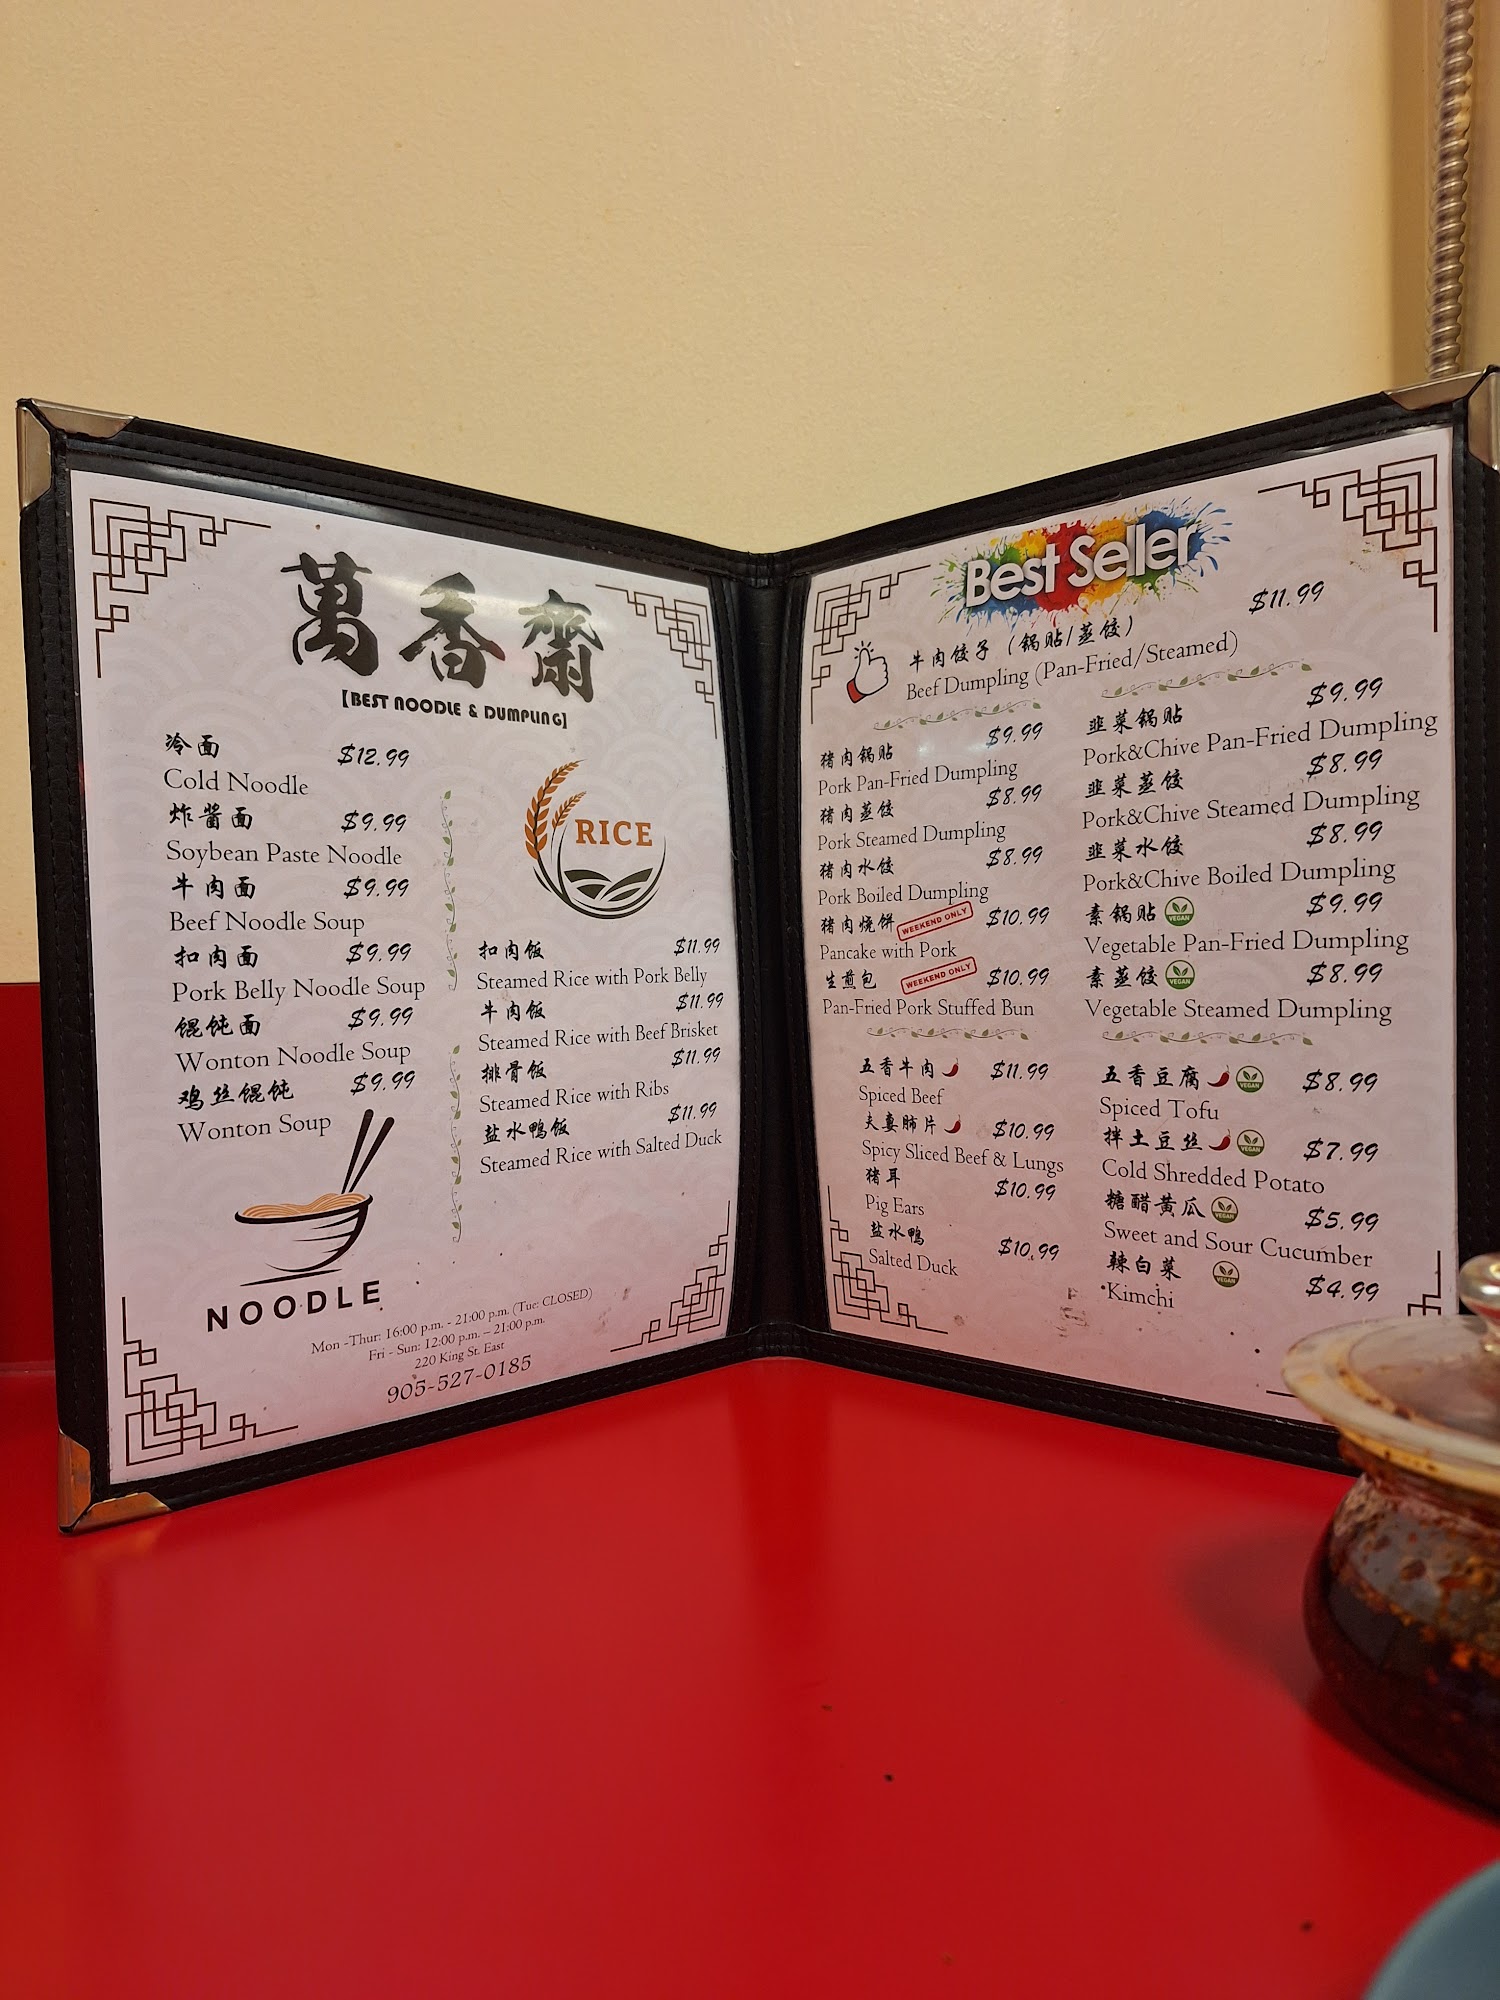 萬香齋
【BEST NOODLE & DUMPLING】
冷面 $12.99
Cold Noodle
炸酱面 $9.99
Soybean Paste Noodle
牛肉面 $9.99
Beef Noodle Soup
扣肉面 $9.99
Pork Belly Noodle Soup
馄饨面 $9.99
Wonton Noodle Soup
鸡丝馄饨 $9.99
Wonton Soup
NOODLE
RICE
扣肉饭 $11.99
Steamed Rice with Pork Belly
牛肉饭 $11.99
Steamed Rice with Beef Brisket
排骨饭 $11.99
Steamed Rice with Ribs
盐水鸭饭 $11.99
Steamed Rice with Salted Duck
Mon -Thur: 16:00 p.m. - 21:00 p.m. (Tue: CLOSED)
Fri - Sun: 12:00 p.m. – 21:00 p.m.
220 King St. East
905-527-0185
Best Seller
$11.99
牛肉饺子（锅贴/蒸饺）
Beef Dumpling (Pan-Fried/Steamed)
猪肉锅贴 $9.99
Pork Pan-Fried Dumpling
猪肉蒸饺 $8.99
Pork Steamed Dumpling
猪肉水饺 $8.99
Pork Boiled Dumpling
猪肉烧饼 WEEKEND ONLY $10.99
Pancake with Pork
生煎包 WEEKEND ONLY $10.99
Pan-Fried Pork Stuffed Bun
韭菜锅贴 $9.99
Pork&Chive Pan-Fried Dumpling
韭菜蒸饺 $8.99
Pork&Chive Steamed Dumpling
韭菜水饺 $8.99
Pork&Chive Boiled Dumpling
素锅贴 VEGAN $9.99
Vegetable Pan-Fried Dumpling
素蒸饺 VEGAN $8.99
Vegetable Steamed Dumpling
五香牛肉 $11.99
Spiced Beef
夫妻肺片 $10.99
Spicy Sliced Beef & Lungs
猪耳 $10.99
Pig Ears
盐水鸭 $10.99
Salted Duck
五香豆腐 VEGAN $8.99
Spiced Tofu
拌土豆丝 VEGAN $7.99
Cold Shredded Potato
糖醋黄瓜 VEGAN $5.99
Sweet and Sour Cucumber
辣白菜 VEGAN $4.99
Kimchi